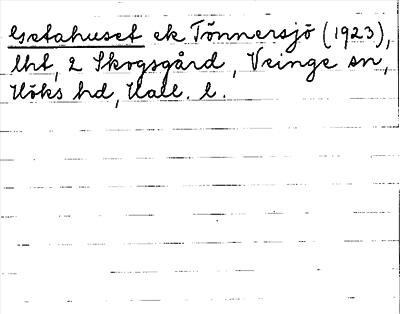 Getahuset ek Tönnersjö (1923),
lht, 2 Skogsgård, Veinge sn,
Höks hd, Hall. l.